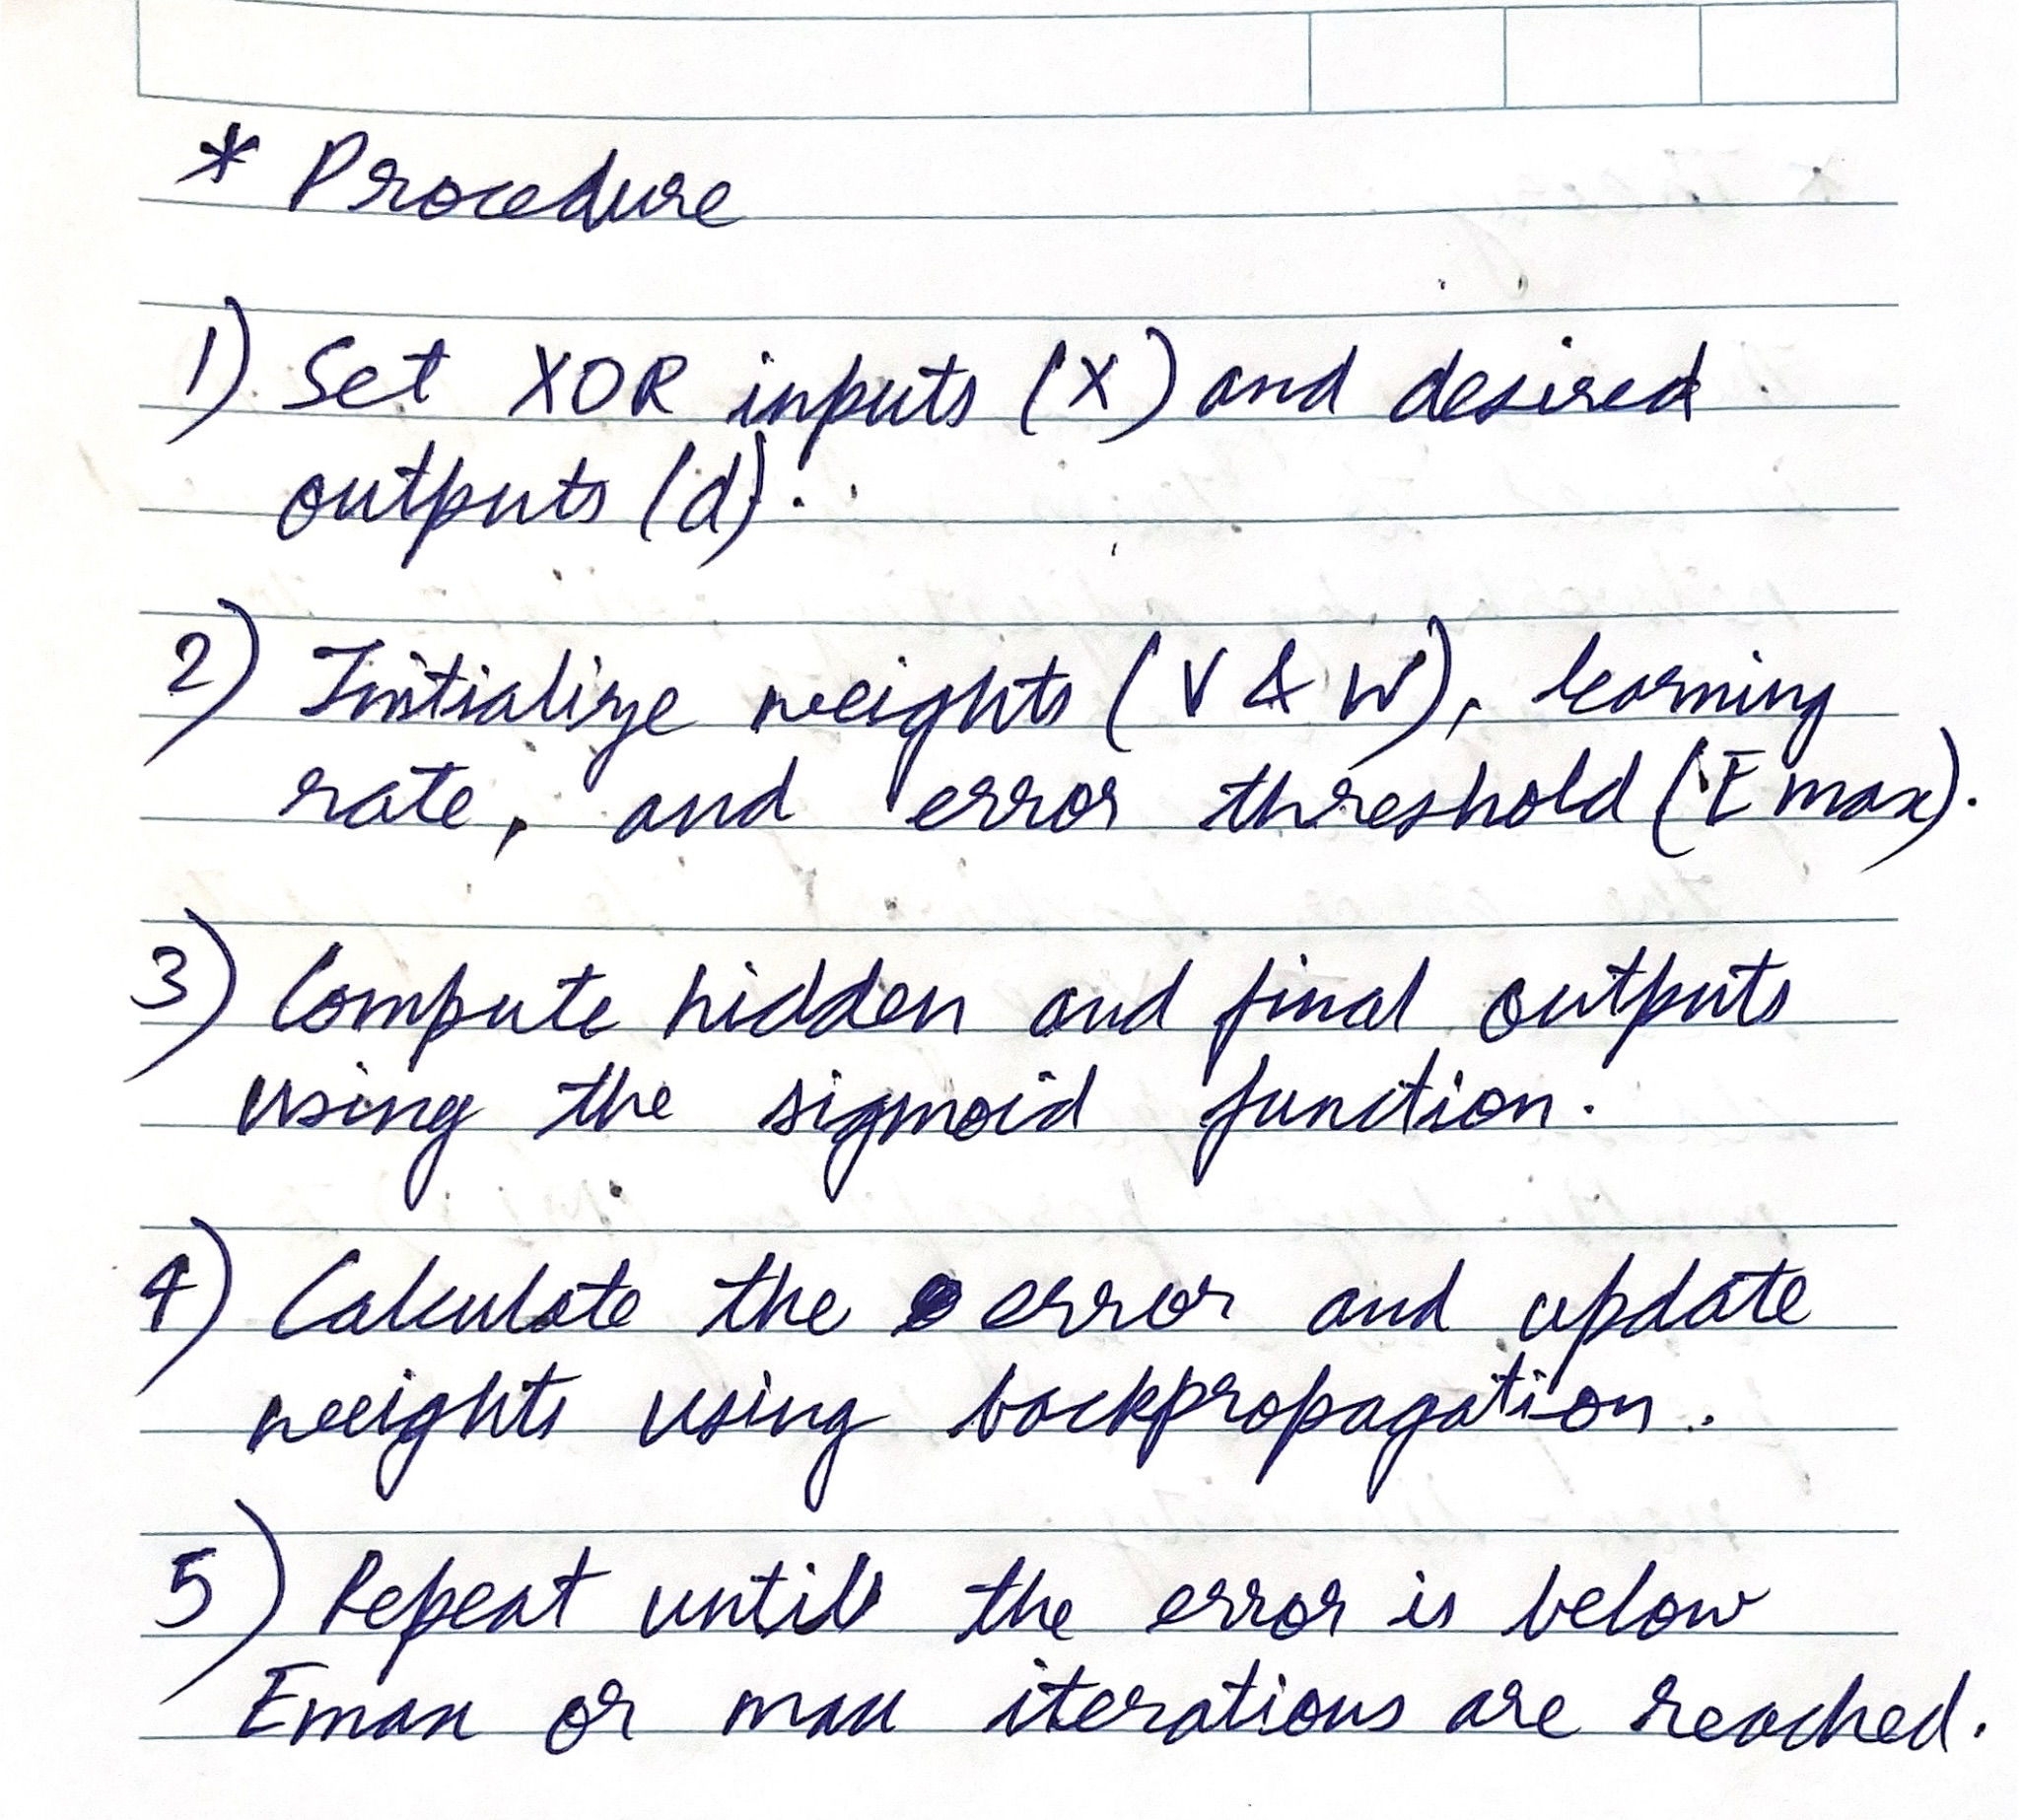 * Procedure
1) Set XOR inputs (X) and desired
outputs (d).
2) Initialize weights (V & W), learning
rate, and error threshold (Emax).
3) Compute hidden and final outputs
using the sigmoid function.
4) Calculate the error and update
weights using backpropagation.
5) Repeat until the error is below
Emax or max iterations are reached.